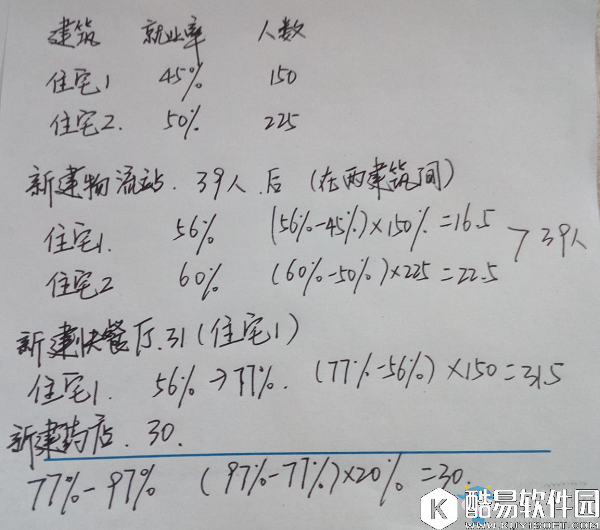 建筑 就业率 人数
住宅1 45% 150
住宅2. 50% 225
新建物流站. 39人 后 (在两建筑间)
住宅1. 56% (56%-45%)×150%=16.5 > 39人
住宅2 60% (60%-50%)×225=22.5
新建快餐厅.31(住宅1)
住宅1. 56%→77%. (77%-56%)×150=31.5
新建药店. 30.
77%-97% (97%-77%)×20%=30.
K 酷易软件园
WWW.KUYISOFT.COM